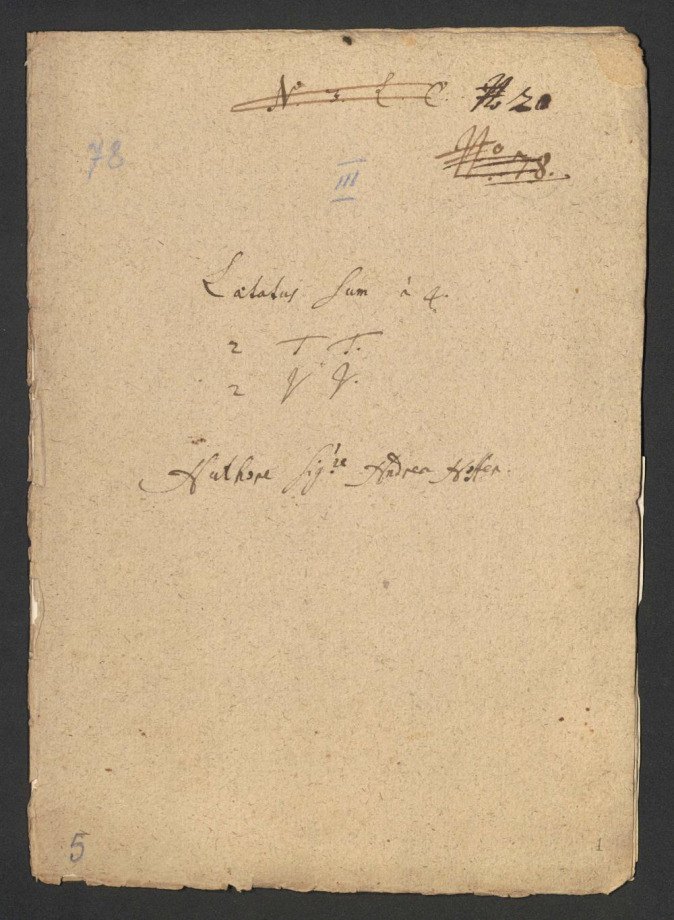 N. 3. L. C. No 20
No. 78.
78
III
Lætatus sum à 4.
2 T T.
2 V V.
Authore Sig:re Andrea Hoffer.
5
1